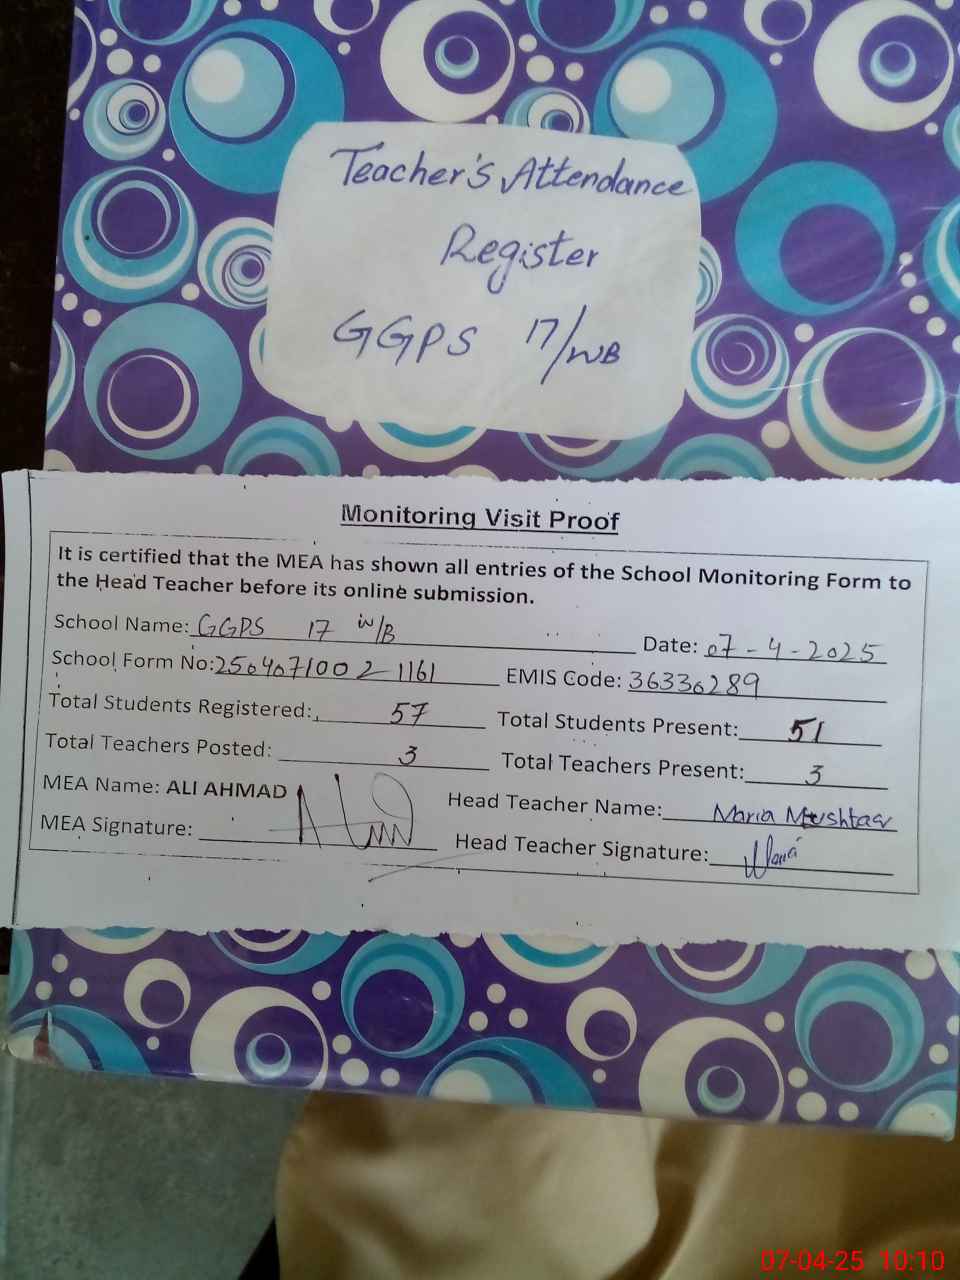 Teacher's Attendance
Register
GGPS 17/WB
Monitoring Visit Proof
It is certified that the MEA has shown all entries of the School Monitoring Form to
the Head Teacher before its online submission.
School Name: GGPS 17 W/B Date: 07-4-2025
School Form No: 2504071002-1161 EMIS Code: 36330289
Total Students Registered: 57 Total Students Present: 51
Total Teachers Posted: 3 Total Teachers Present: 3
MEA Name: ALI AHMAD Head Teacher Name: Maria Mushtaq
MEA Signature: Head Teacher Signature: Maria
07-04-25 10:10